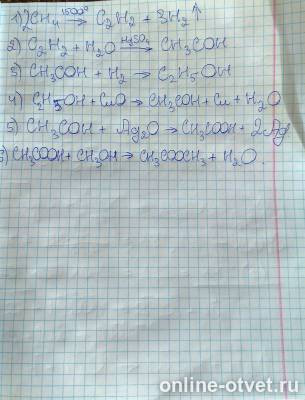 1) 2CH₄ 1500° → C₂H₂ + 3H₂ ↑
2) C₂H₂ + H₂O H₂SO₄ → CH₃COH
3) CH₃COH + H₂ → C₂H₅OH
4) C₂H₅OH + CuO → CH₃COH + Cu + H₂O
5) CH₃COH + Ag₂O → CH₃COOH + 2Ag
6) CH₃COOH + CH₃OH → CH₃COOCH₃ + H₂O.
online-otvet.ru